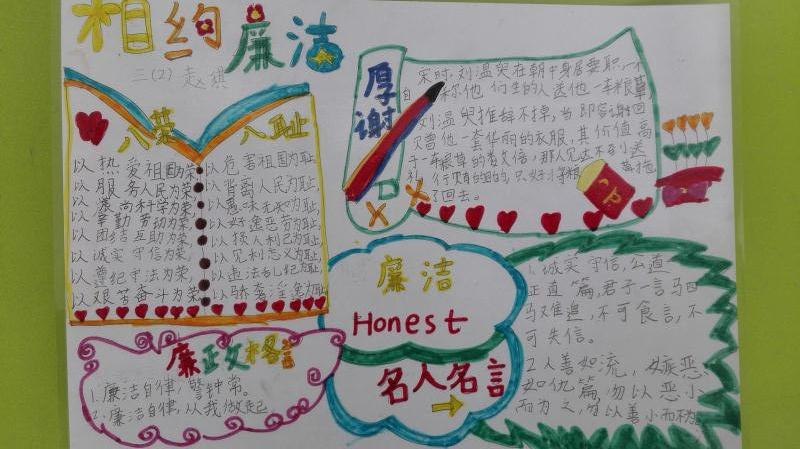 相约廉洁
三(2) 赵祺
八荣 八耻
以热爱祖国为荣 以危害祖国为耻,
以服务人民为荣 以背离人民为耻,
以崇尚科学为荣 以愚昧无知为耻,
以辛勤劳动为荣 以好逸恶劳为耻,
以团结互助为荣 以损人利己为耻,
以诚实守信为荣, 以见利忘义为耻,
以遵纪守法为荣, 以违法乱纪为耻,
以艰苦奋斗为荣 以骄奢淫逸为耻
厚谢
宋时,刘温叟在朝中身居要职,一个
自称他 们生的人送他一车粮草,
刘温叟推辞不掉,当即答谢回
赠他一套华丽的衣服,其价值高
于一车粮草的数倍,那人见达不到送
礼行贿的目的,只好将粮草拖
了回去。
廉洁
Honest
名人名言
廉政格言
1.廉洁自律,警钟常。
2.廉洁自律,从我做起
1.诚实守信,公道
正直篇,君子一言马四
马难追,不可食言,不
可失信。
2.人善如流,嫉恶
如仇篇,勿以恶小
而为之,勿以善小而不为。